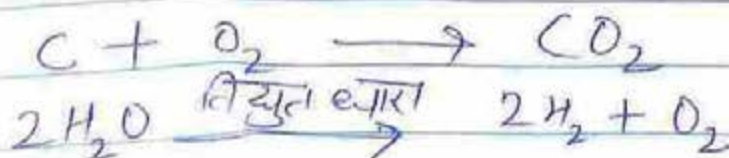 C + O₂ → CO₂
2H₂O विद्युत धारा → 2H₂ + O₂